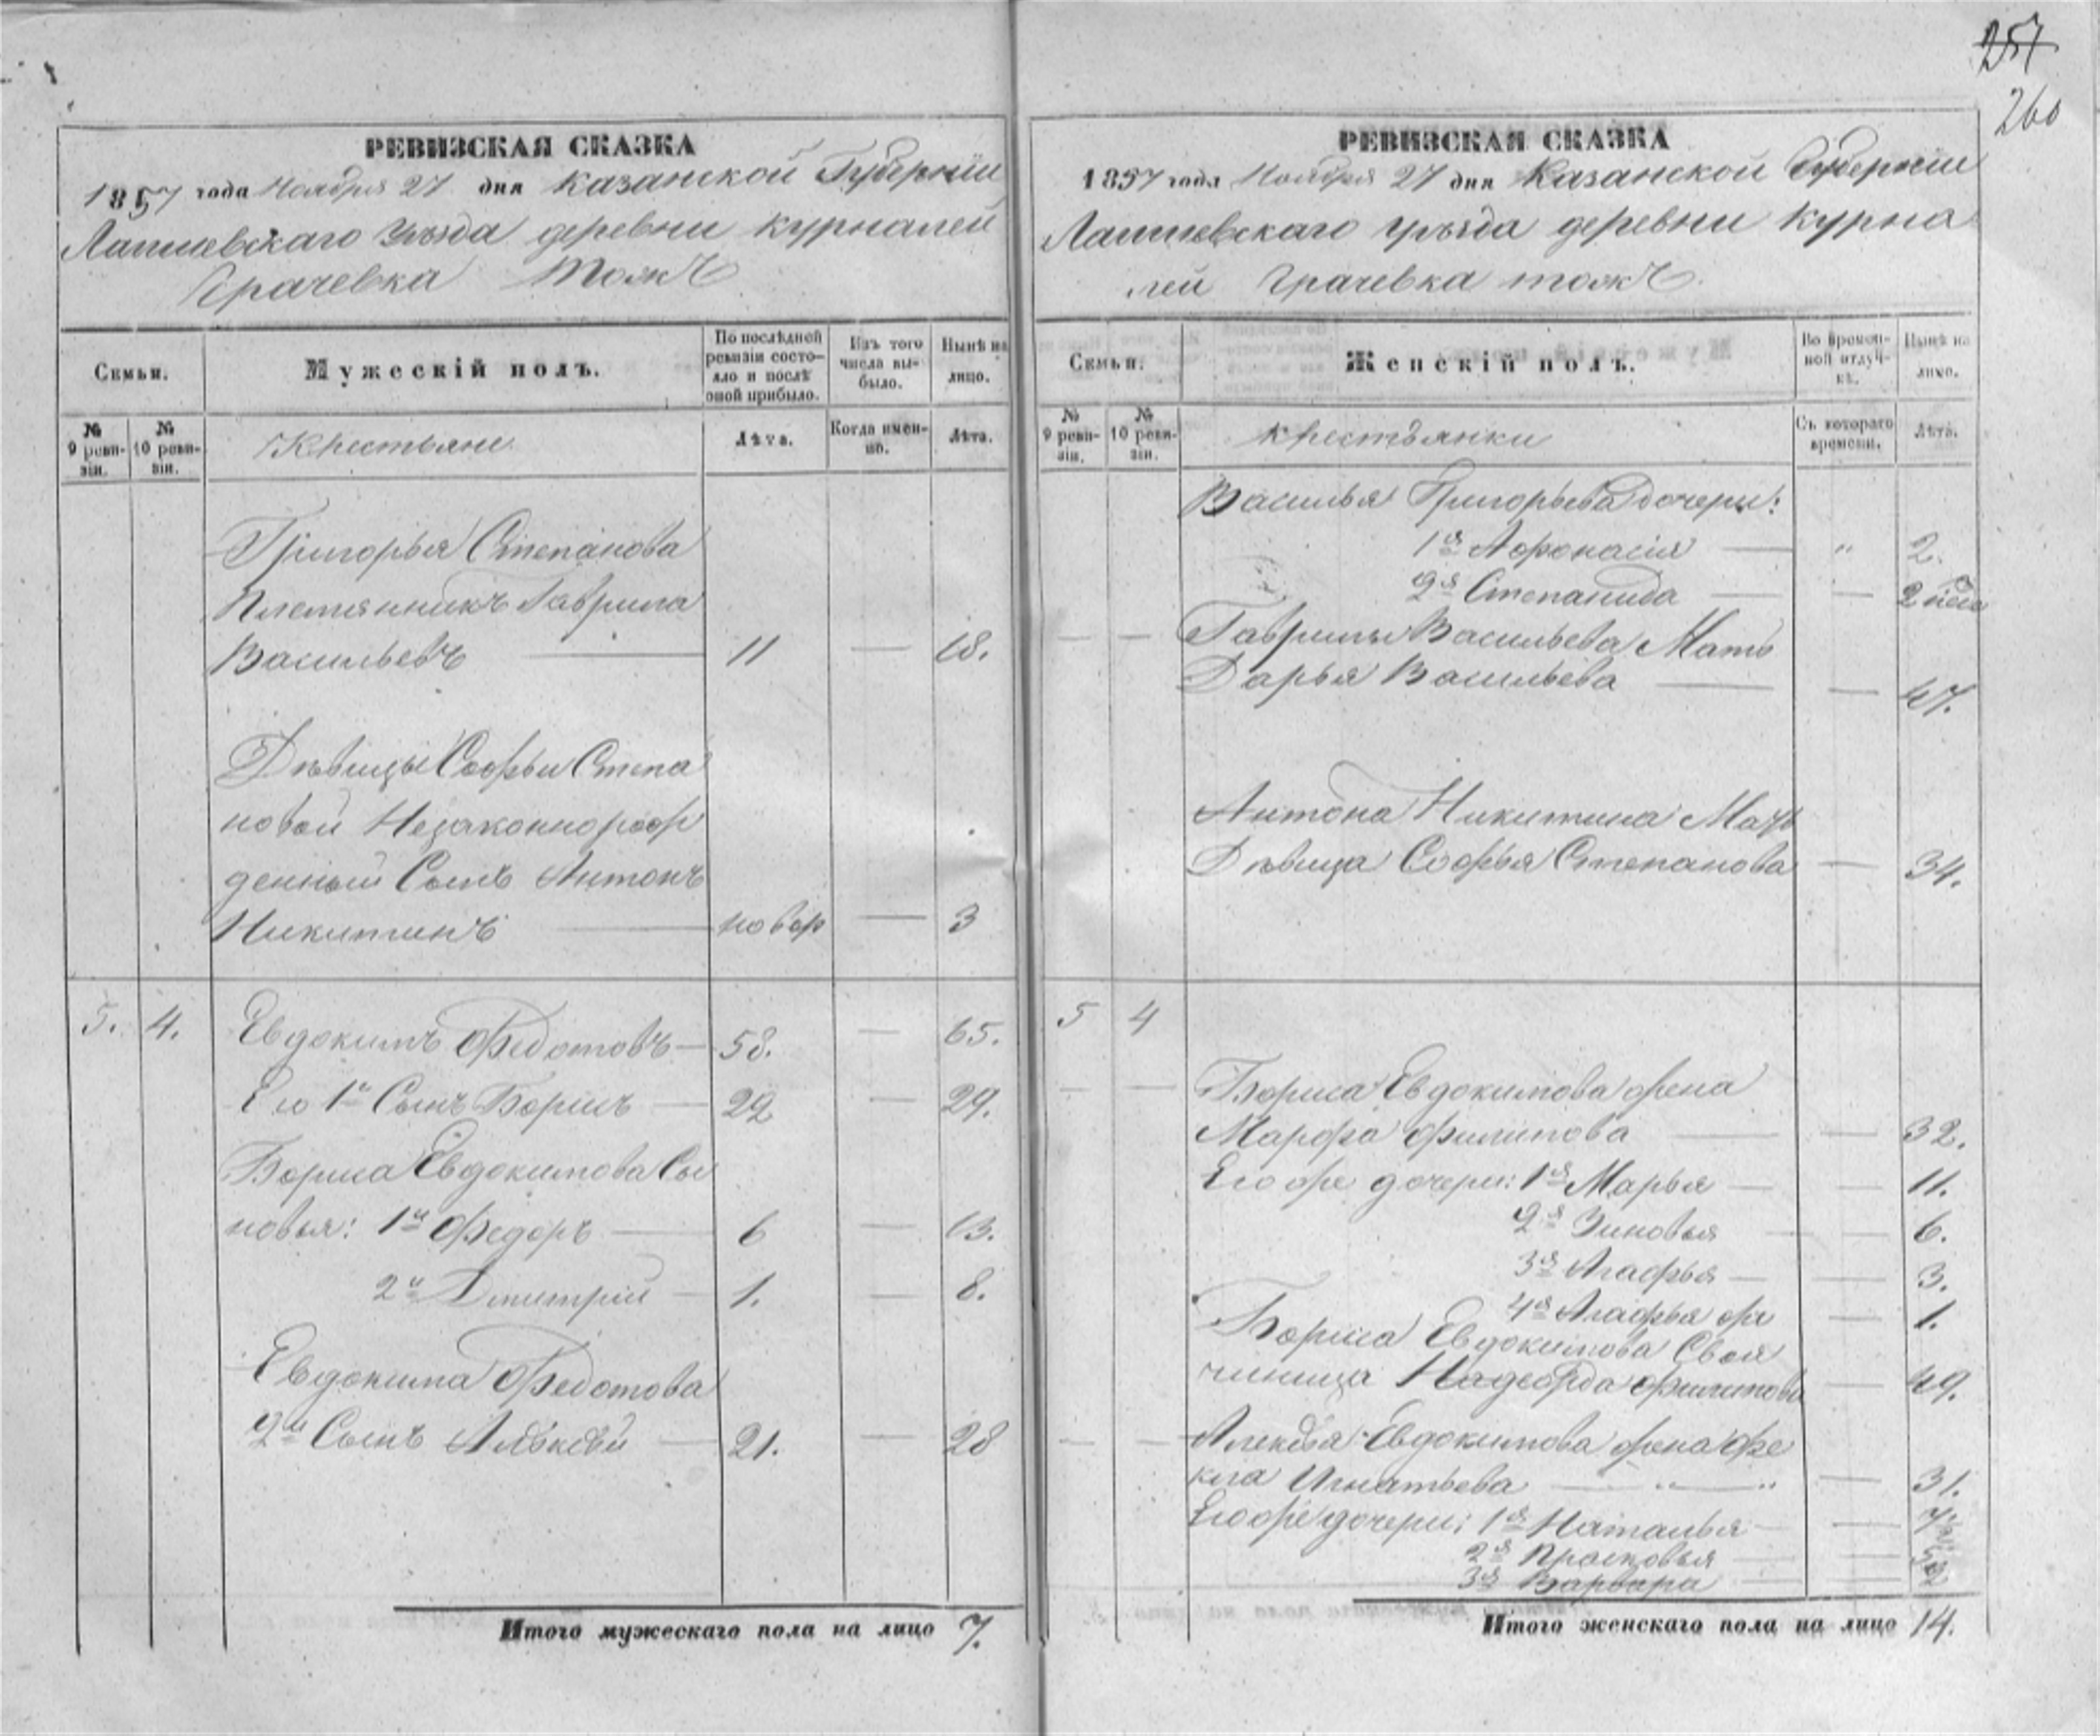 257
260
РЕВИЗСКАЯ СКАЗКА
1857 года Ноября 27 дня Казанской Губернiи
Лаишевскаго Уѣзда деревни Курналей
Грачевка тожъ
Семьи.
Мужескiй полъ.
По послѣдней ревизiи состояло и послѣ оной прибыло.
Изъ того числа выбыло.
Нынѣ на лицо.
№ 9 ревизiи.
№ 10 ревизiи.
Крестьяне
Лѣта.
Когда именно.
Лѣта.
Григорья Степанова
Племянникъ Гаврила
Васильевъ — 11 — 18.
Дѣвицы Софьи Степа
новой Незаконнорож
денный Сынъ Антонъ
Никитинъ — новор — 3
5. 4. Евдокимъ Федотовъ — 58. — 65.
Его 1й Сынъ Борисъ — 22 — 29.
Бориса Евдокимова Сы
новья: 1й Федоръ — 6 — 13.
2й Дмитрiй — 1. — 8.
Евдокима Федотова
2й Сынъ Алѣксѣй — 21. — 28
Итого мужескаго пола на лицо 7.
РЕВИЗСКАЯ СКАЗКА
1857 года Ноября 27 дня Казанской Губернiи
Лаишевскаго уѣзда деревни Курна
лей Грачевка тожъ.
Семьи.
Женскiй полъ.
Во временной отлучкѣ.
Нынѣ на лицо.
№ 9 ревизiи.
№ 10 ревизiи.
Крестьянки
Съ котораго времени.
Лѣта.
Василья Григорьева дочери:
1я Афонасiя — " 2.
2я Степанида — — 2 нед
— — Гаврилы Васильева Мать
Дарья Васильева — — 47.
Антона Никитина Мать
Дѣвица Софья Степанова — 34.
5 4
— — Бориса Евдокимова жена
Марфа Филипова — — 32.
Его же дочери: 1я Марья — — 11.
2я Зиновья — — 6.
3я Агафья — — 3.
4я Агафья же — 1.
Бориса Евдокимова Своя
чиница Надежда Филипова — 49.
— — Алексѣя Евдокимова жена Фе
кла Игнатьева — " — " — 31.
Его же дочери: 1я Наталья — — 7½
2я Прасковья — — 5
3я Варвара — — 2
Итого женскаго пола на лицо 14.